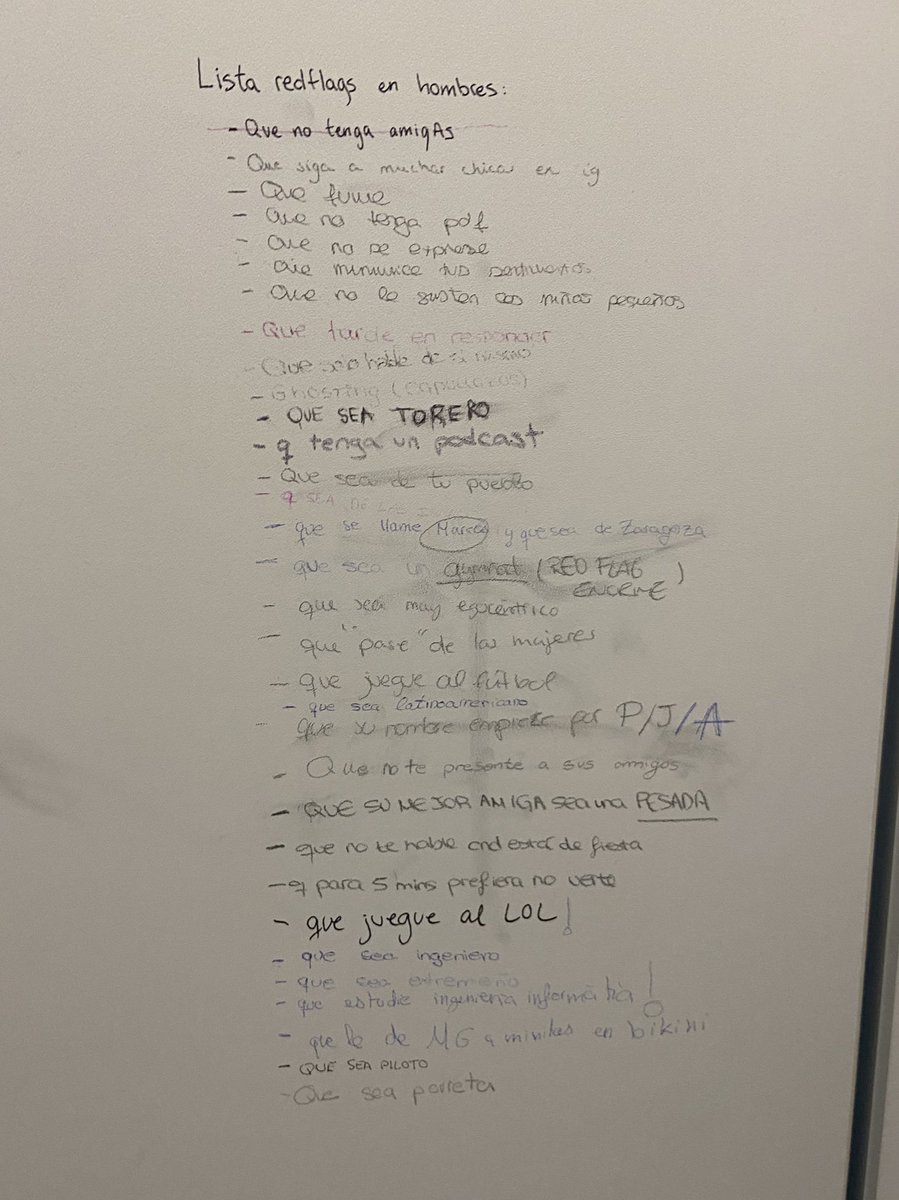 Lista redflags en hombres:
- Que no tenga amigAs
- Que siga a muchas chicas en ig
- Que fume
- Que no tenga pdf
- Que no se exprese
- Que minimice tus sentimientos
- Que no le gusten los niños pequeños
- Que tarde en responder
- Que solo hable de si mismo
- Ghosting (capullazos)
- QUE SEA TORERO
- q tenga un podcast
- Que sea de tu pueblo
- q SEA DE
- que se llame Marcos y que sea de Zaragoza
- que sea un gymrat (RED FLAG
ENORME)
- que sea muy egocéntrico
- que "pase" de las mujeres
- que juegue al fútbol
- que sea latinoamericano
- que su nombre empiece por P/J/A
- Que no te presente a sus amigos
- QUE SU MEJOR AMIGA sea una PESADA
- que no te hable cnd está de fiesta
- q para 5 mins prefiera no verte
- que juegue al LOL!
- que sea ingeniero
- que sea extremeño
- que estudie ingeniería informática!
- que le de MG a minitas en bikini
- QUE SEA PILOTO
- Que sea porreta